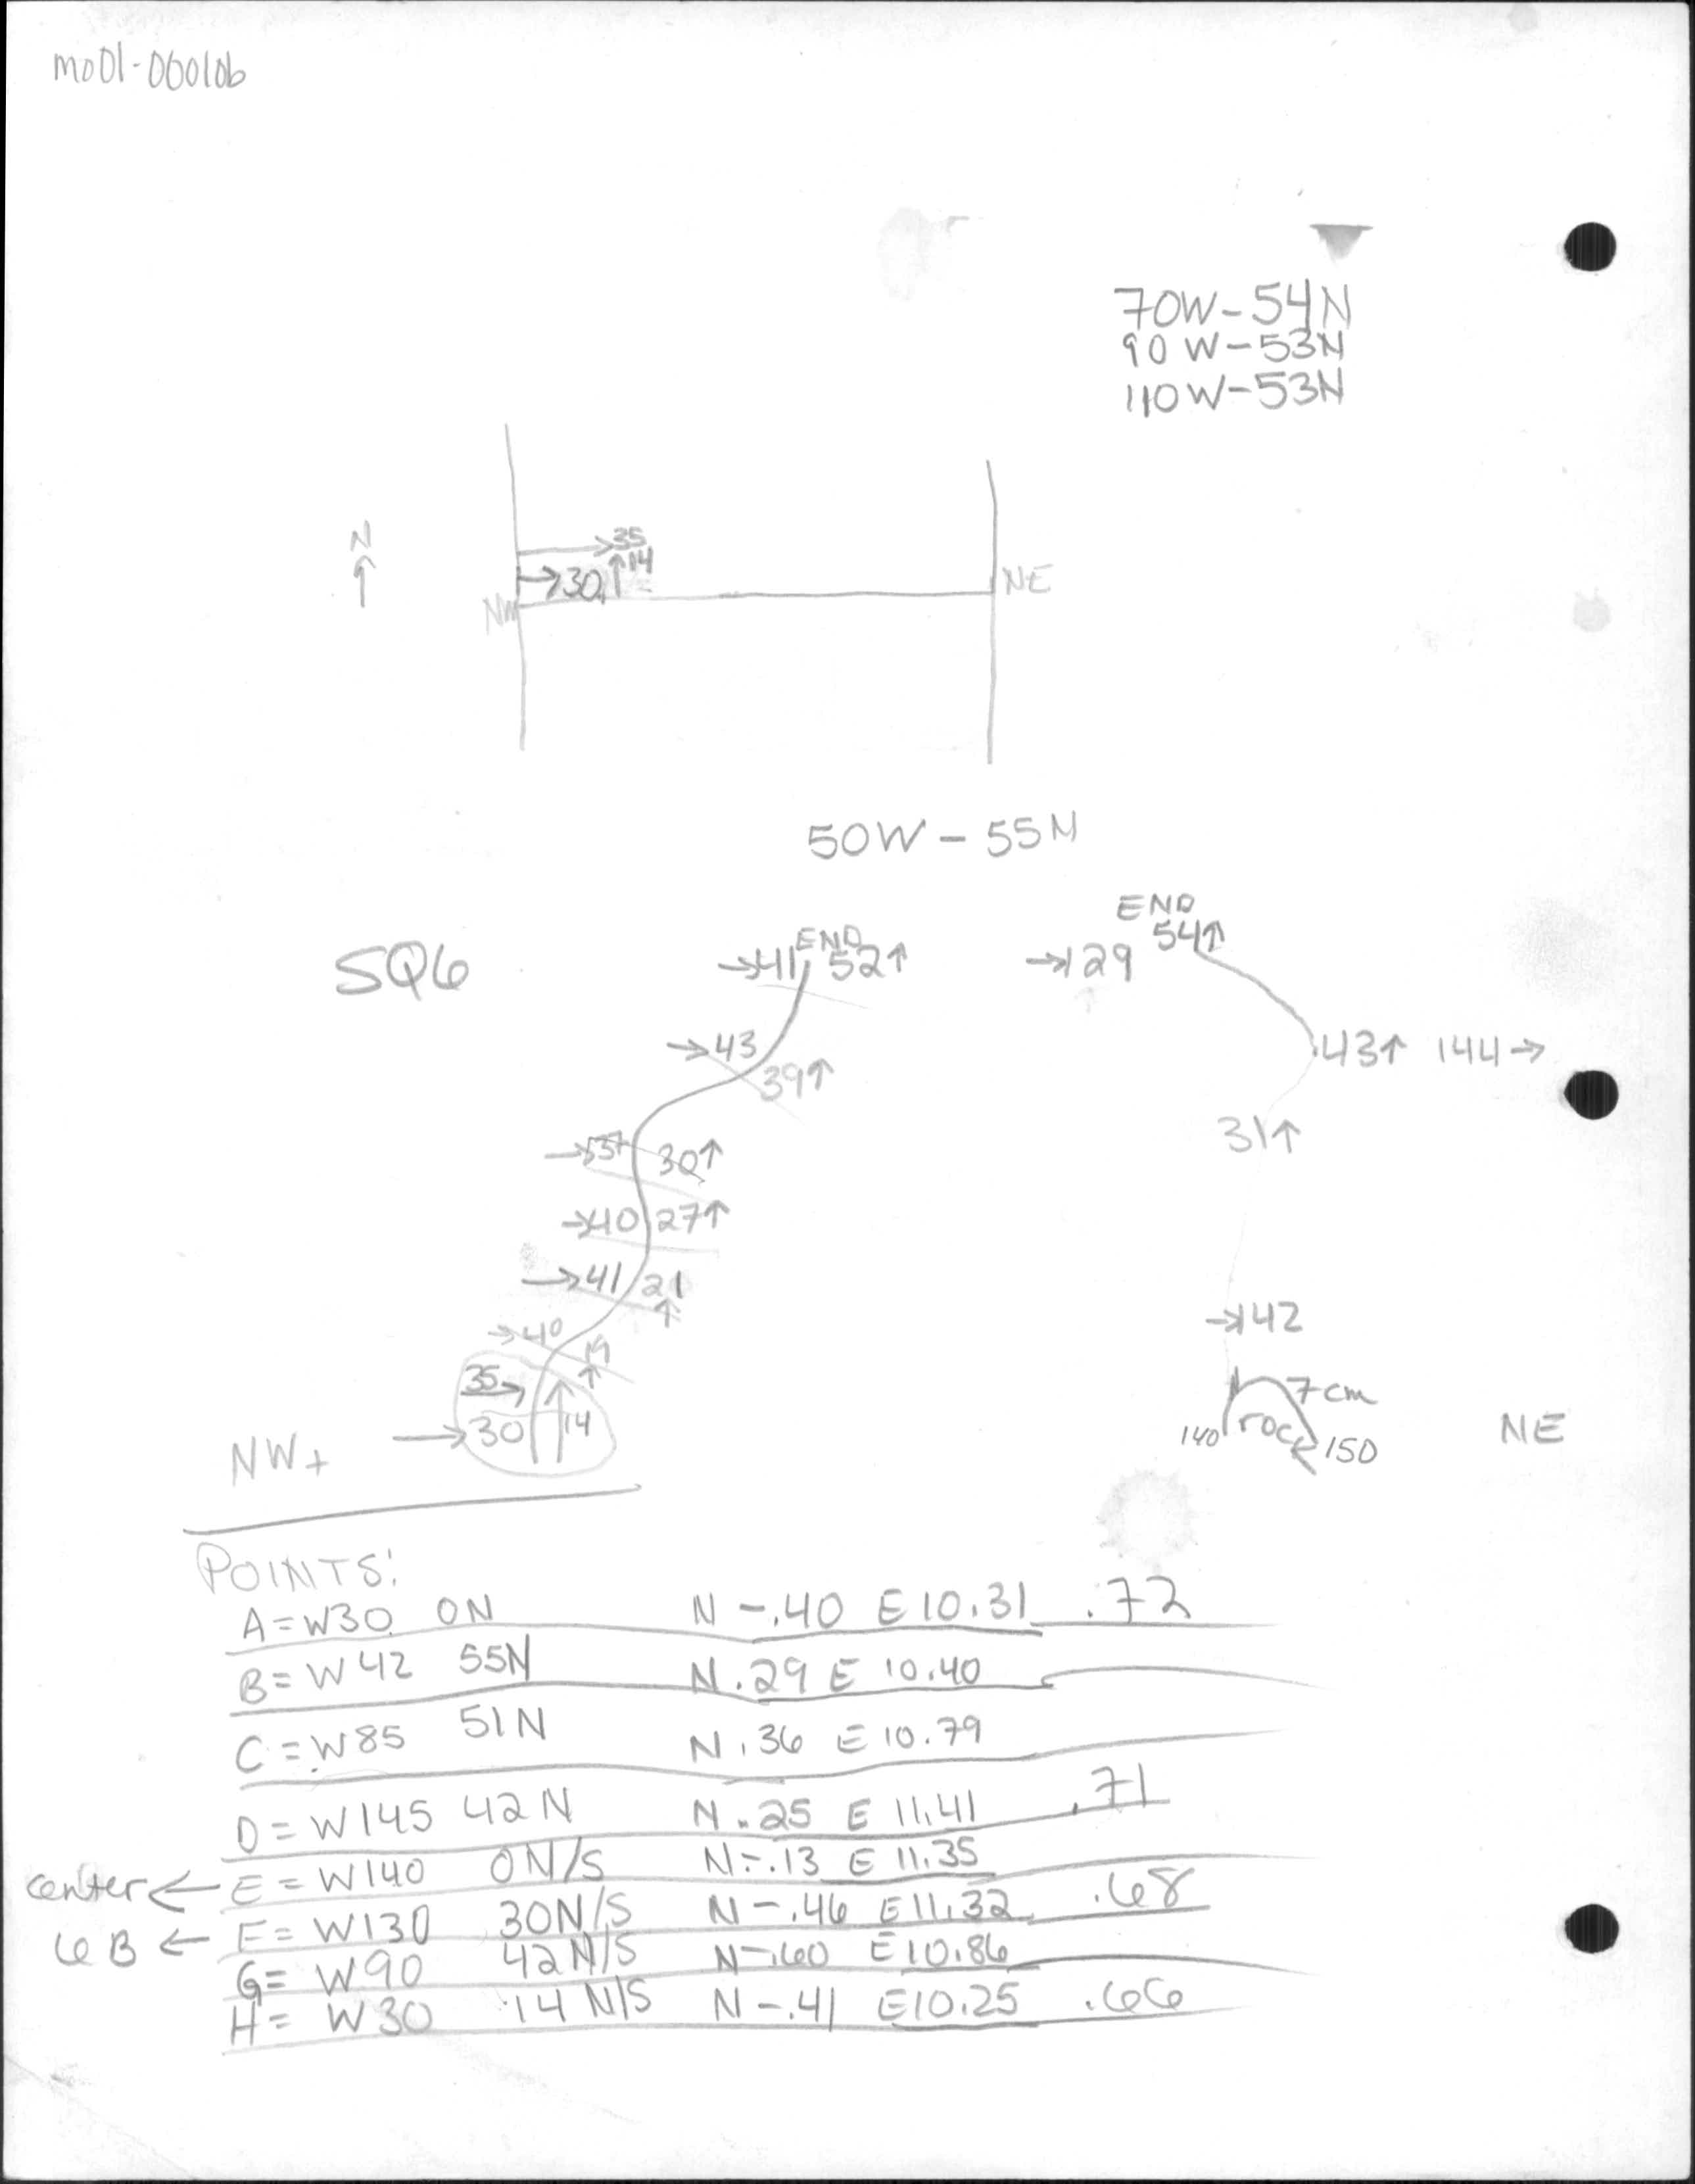 mo01-060106
70W-54N
90W-53N
110W-53N
N
→35
→30 ↑14
NW
NE
50W - 55N
SQ6
END
→41 52↑
END
54↑
→129
→43
39↑
.43↑ 144→
→37 30↑
31↑
→40 27↑
→41 21↑
→40 19↑
→142
35→
→30 14
7cm
140 rock 150
NW+
NE
POINTS:
A=W30 0N N -.40 E10.31 .72
B=W42 55N N.29 E 10.40
C=W85 51N N.36 E 10.79
D=W145 42N N.25 E 11.41 .71
center ← E=W140 0N/S N-.13 E 11.35
6B ← F=W130 30N/S N-.46 E11.32 .68
G= W90 42N/S N-.60 E10.86
H= W30 14N/S N-.41 E10.25 .66